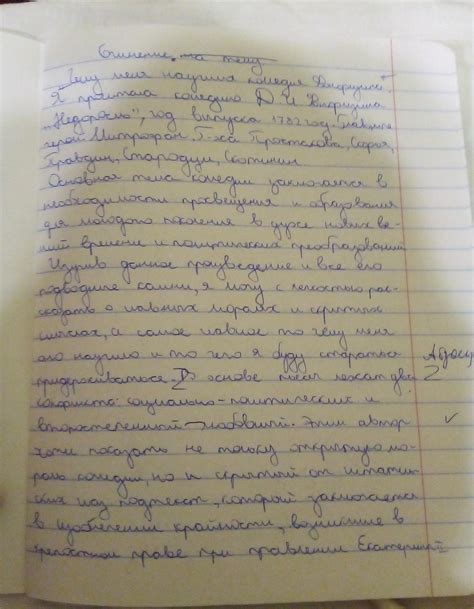 Сочинение на тему
"Чему меня научила комедия Фонвизина"
Я прочитала комедию Д И Фонвизина
"Недоросль", год выпуска 1782 год. Главные
герои Митрофан. Г-жа Простакова, Софья,
Правдин, Стародум, Скотинин
Основная тема комедии заключается в
необходимости просвещения и образования
для молодого поколения в духе новых ве-
яний времени и политических преобразований
Изучив данное произведение и все его
подводные камни, я могу с легкостью рас-
сказать о главных моралях и скрытых
смыслах, а самое главное то чему меня
оно научило и то чего я буду стараться
придерживаться. В основе пьесы лежат два
конфликта: социально-политический и
второстепенный - любовный. Этим автор
хотел показать не только открытую мо-
раль комедии, но и скрытый от
глаз подтекст, который заключается
в изобличении крайности, возникшие в
крепостном праве при правлении Екатерины II